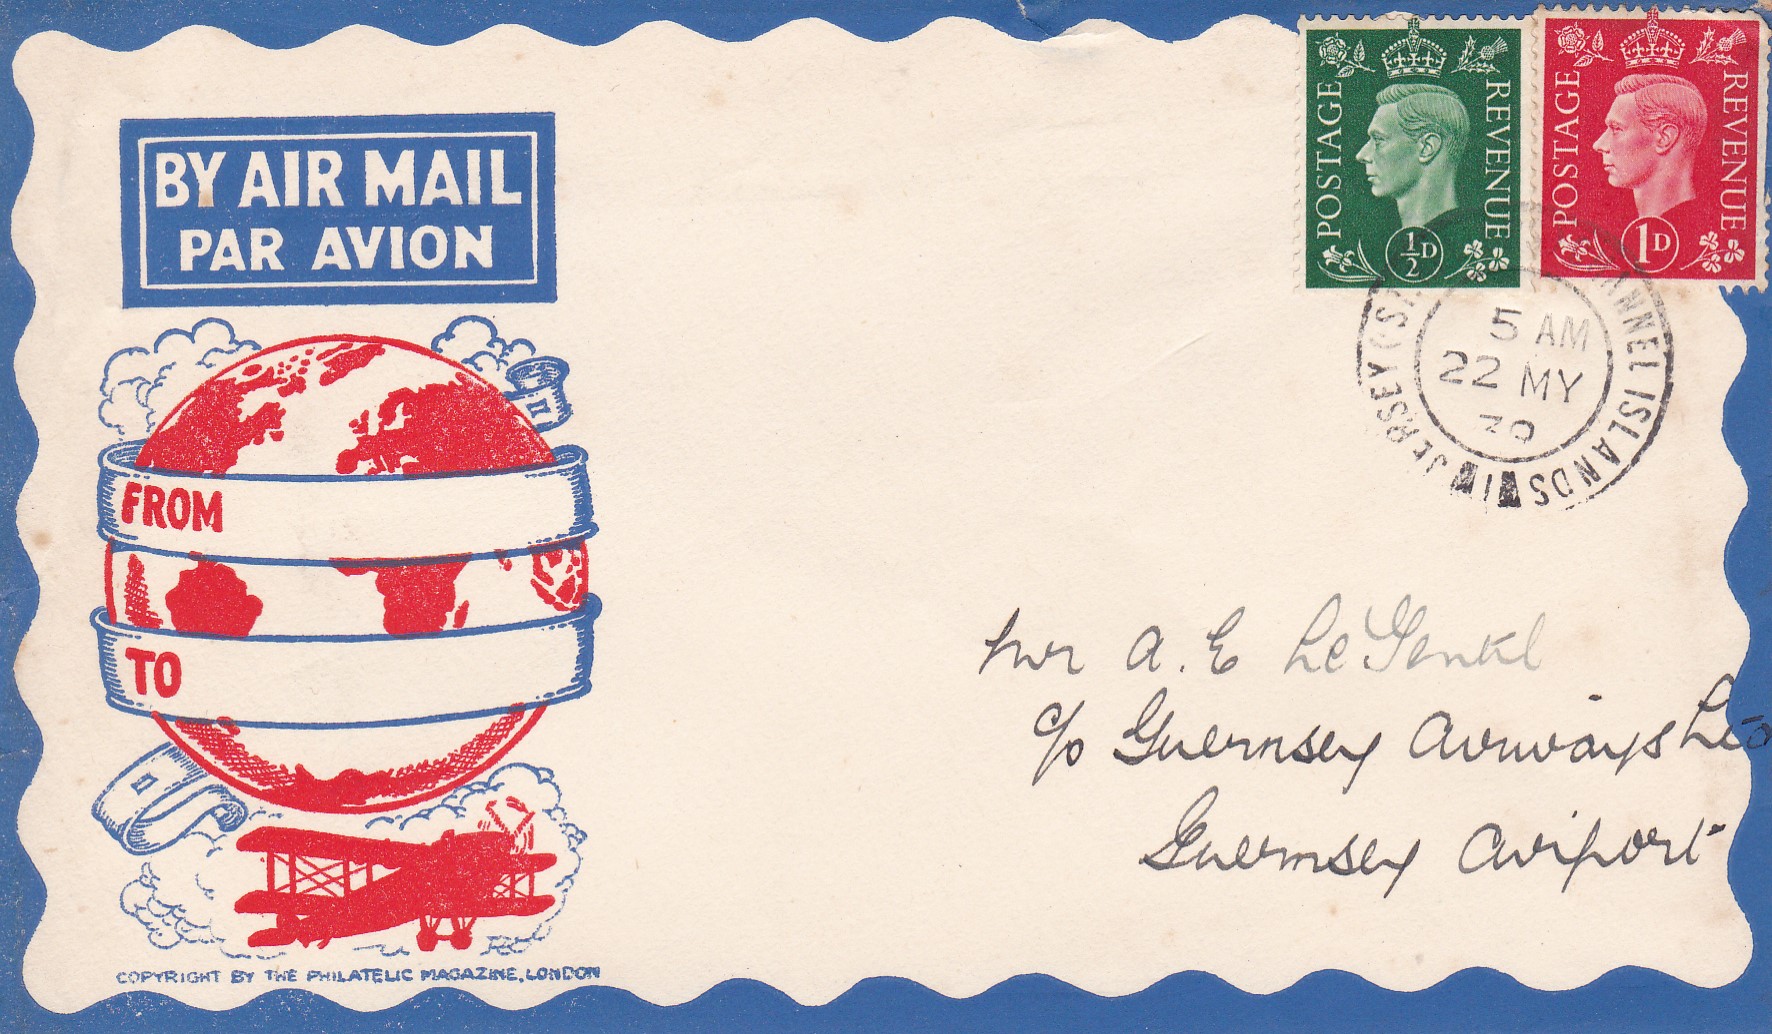 BY AIR MAIL
PAR AVION
FROM
TO
COPYRIGHT BY THE PHILATELIC MAGAZINE, LONDON
POSTAGE REVENUE
½D
POSTAGE REVENUE
1D
JERSEY (ST. CHANNEL ISLANDS
5 AM
22 MY
39
Mr A. E Le Gentil
c/o Guernsey Airways Ltd
Guernsey Airport